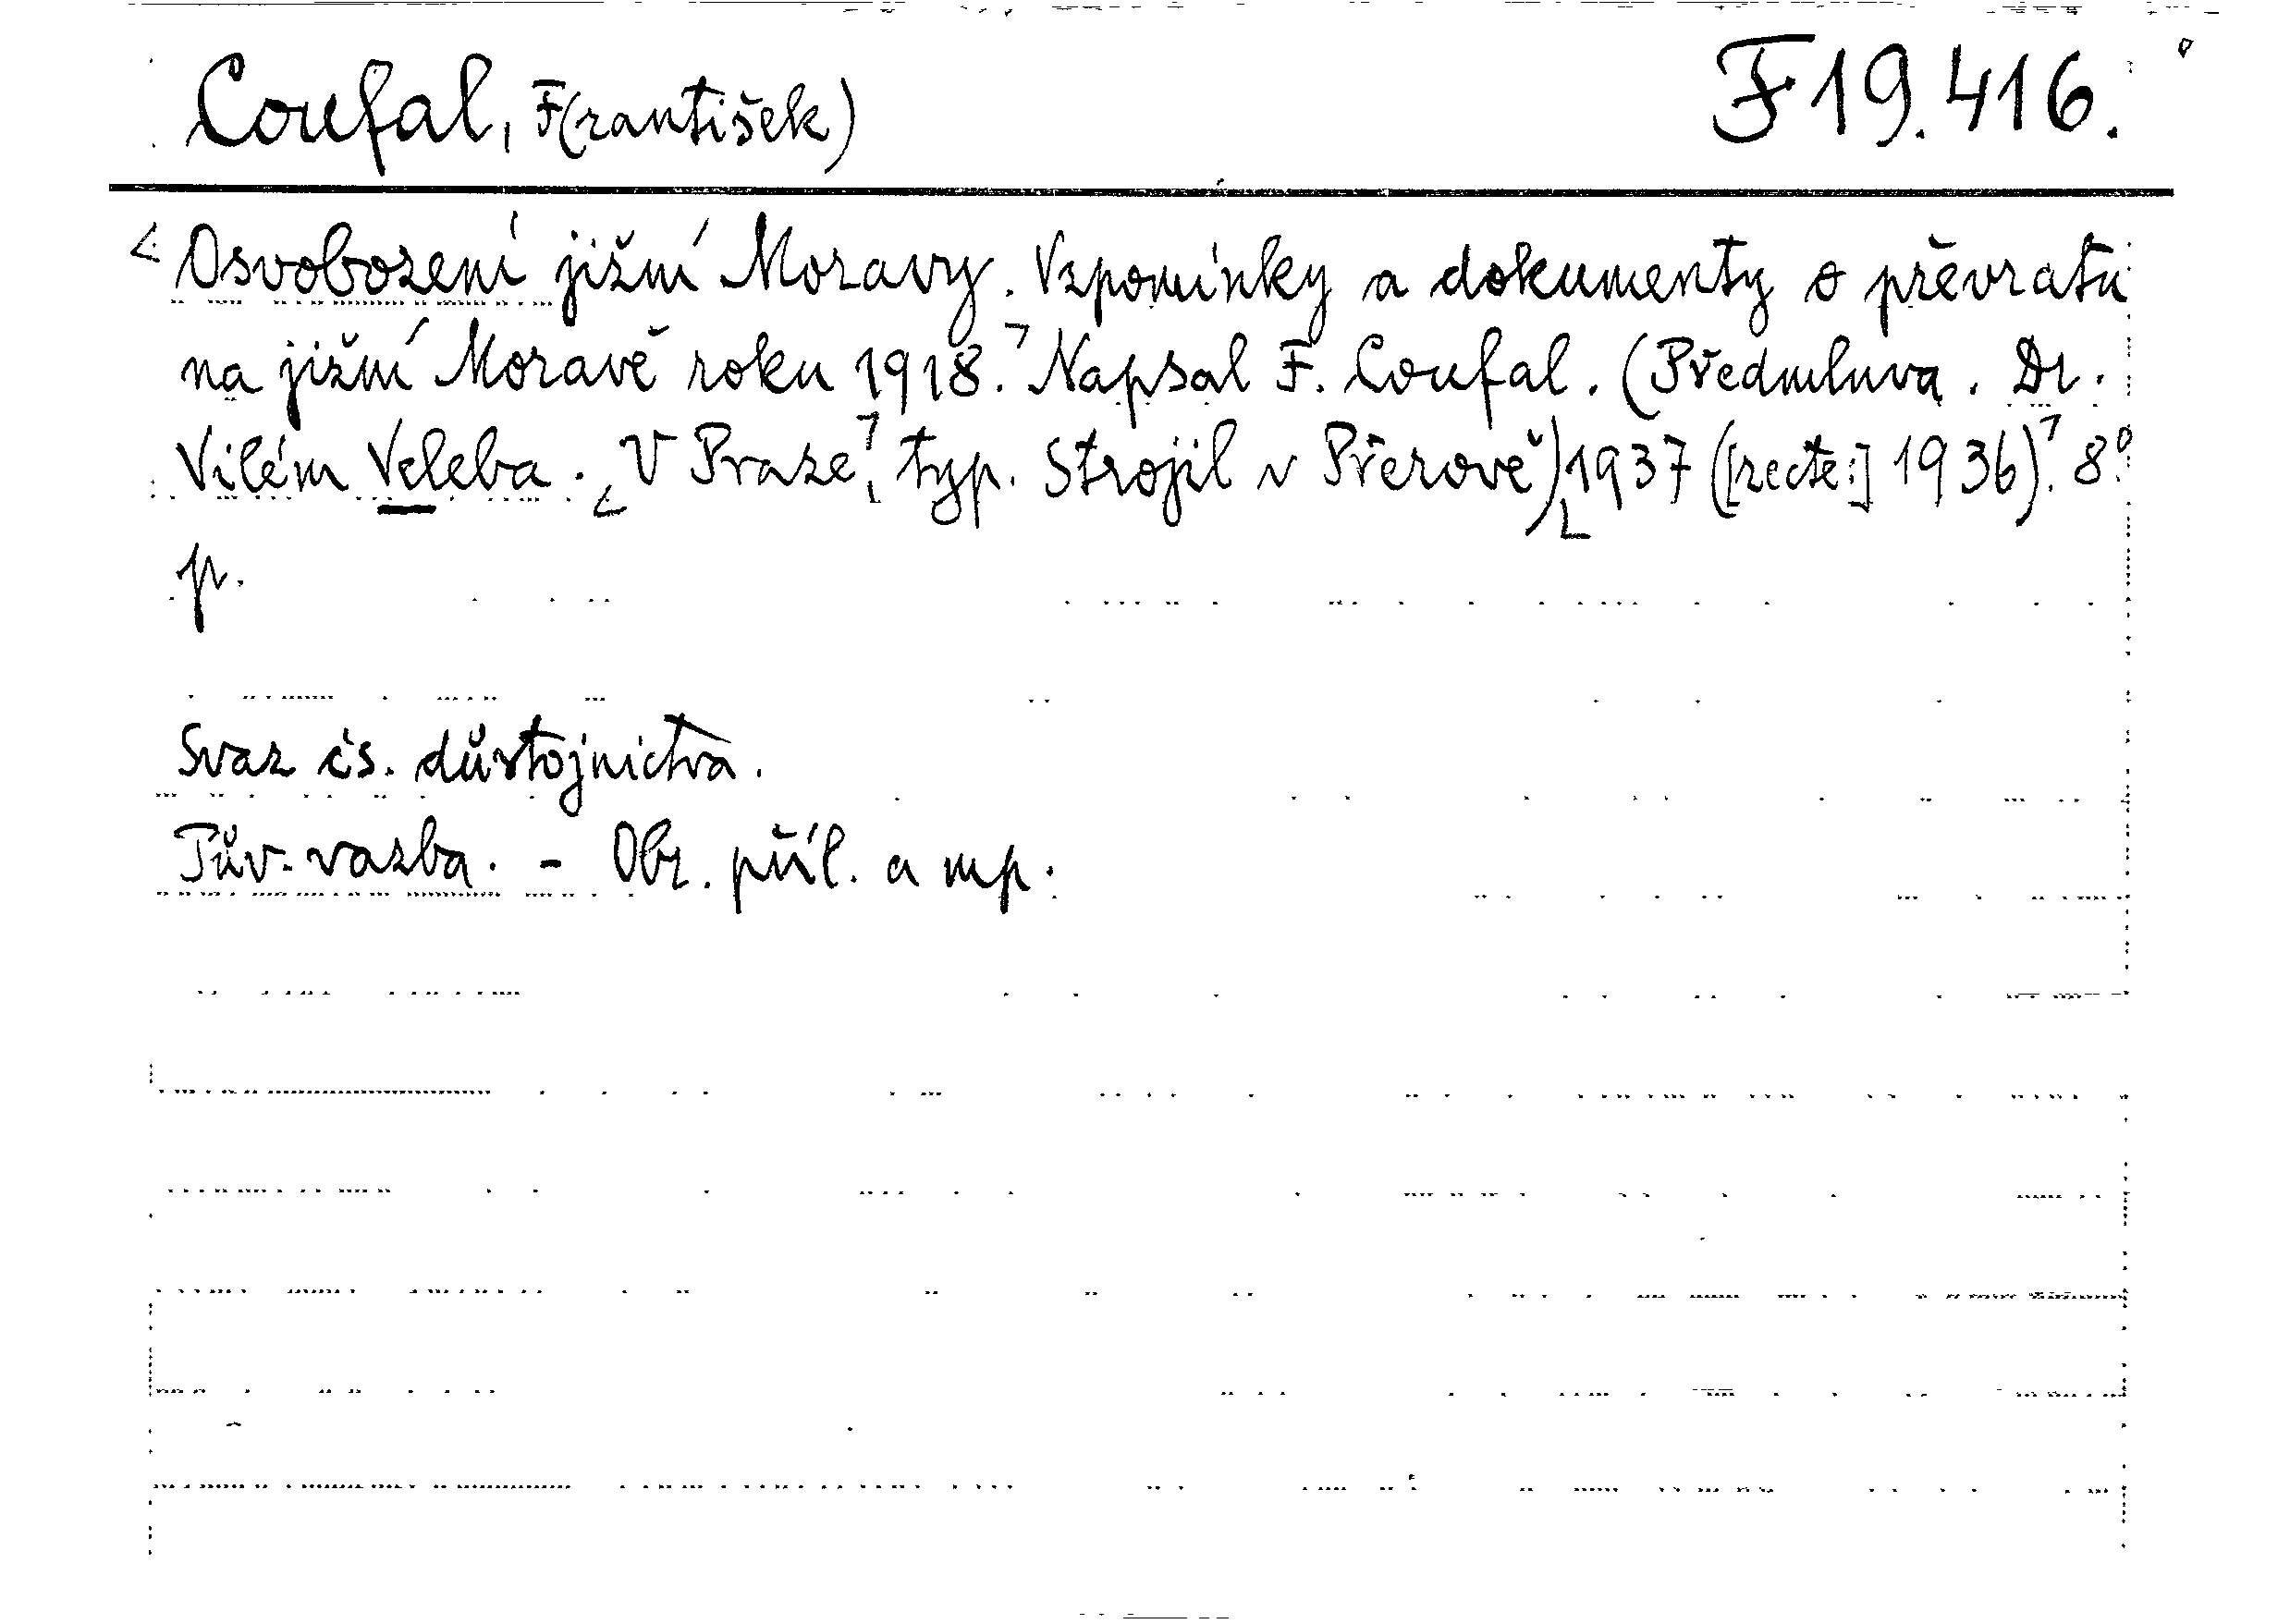 Coufal, F(rantišek) F 19.416.
Osvobození jižní Moravy. Vzpomínky a dokumenty o převratu
na jižní Moravě roku 1918. Napsal F. Coufal. (Předmluva. Dr.
Vilém Veleba. V Praze, typ. Strojil v Přerově) 1937 ([recte:] 1936). 8°
p.
Svaz čs. důstojnictva.
Pův. vazba. - Obr. příl. a mp.